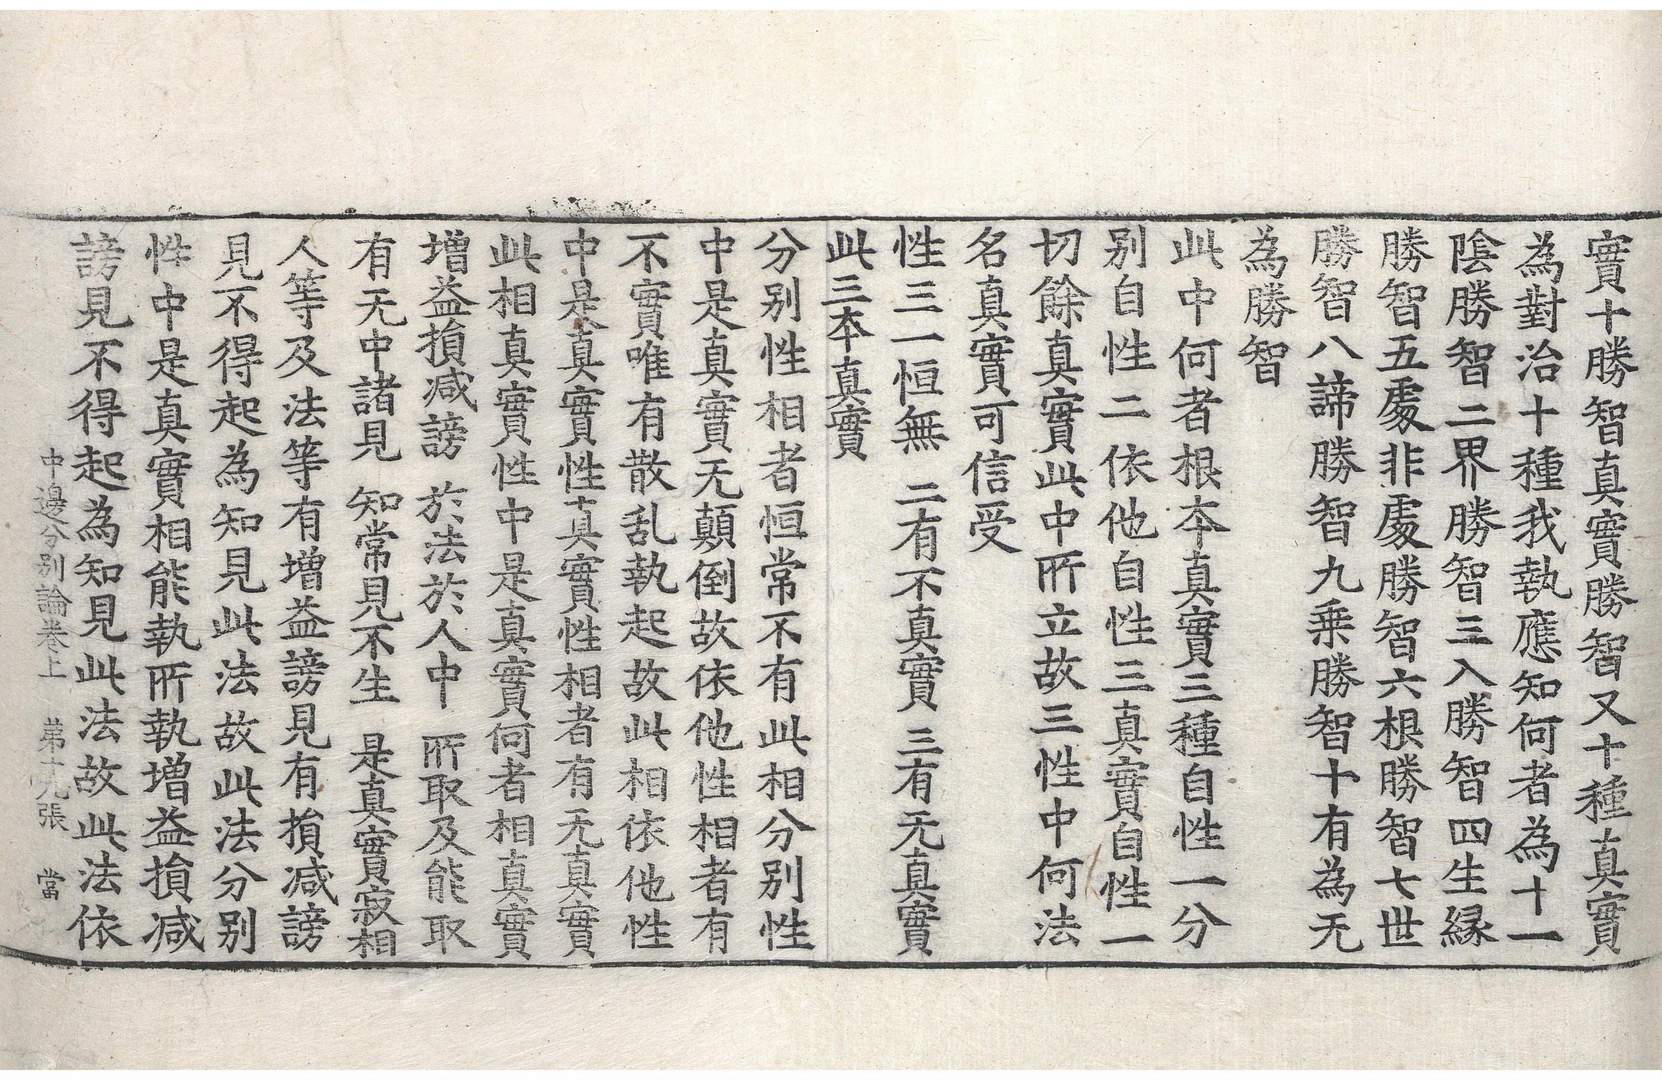 實十勝智真實勝智又十種真實
為對治十種我執應知何者為十一
陰勝智二界勝智三入勝智四生緣
勝智五處非處勝智六根勝智七世
勝智八諦勝智九乗勝智十有為无
為勝智
此中何者根本真實三種自性一分
别自性二依他自性三真實自性一
切餘真實此中所立故三性中何法
名真實可信受
性三一恒無 二有不真實 三有无真實
此三本真實
分别性相者恒常不有此相分别性
中是真實无顛倒故依他性相者有
不實唯有散乱執起故此相依他性
中是真實性真實性相者有无真實
此相真實性中是真實何者相真實
增益損减謗 於法於人中 所取及能取
有无中諸見 知常見不生 是真實寂相
人等及法等有增益謗見有損减謗
見不得起為知見此法故此法分别
性中是真實相能執所執增益損减
謗見不得起為知見此法故此法依
中邊分别論卷上 苐十九張 當